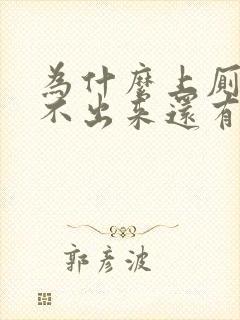 為什麼上廁
不出來還有
郭彥波